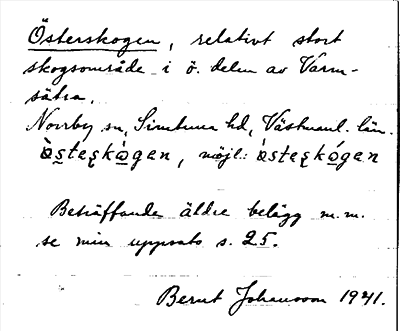 Österskogen, relativt stort
skogsområde i ö. delen av Varm-
sätra.
Norrby sn, Simtuna hd, Västmanl. län.
ò̤s̱teʂkò̱gan, möjl.: ò̤steʂkó̱gan
Beträffande äldre belägg m.m.
se min uppsats s. 25.
Bernt Johansson 1941.